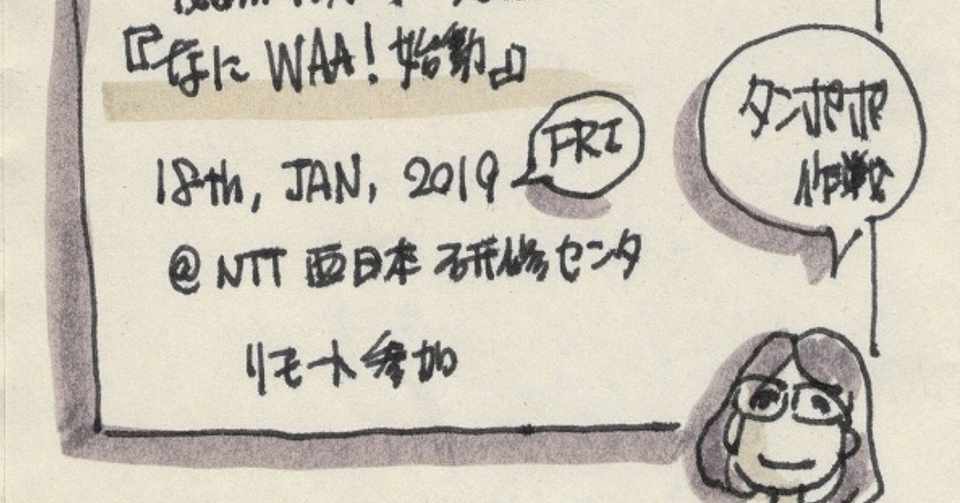 『なに WAA! 始動』
18th, JAN, 2019
FRI
@ NTT 西日本 研修センタ
リモート参加
タンポポ
作戦